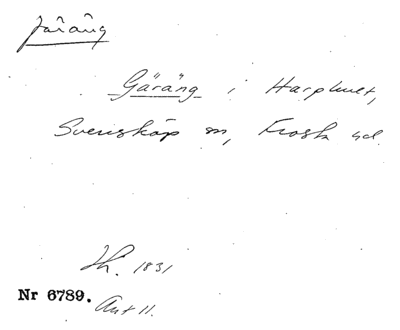 järäng
Gäräng i Harphult,
Svensköp sn, Frosta hd.
Lh. 1831
Nr 6789.
Akt 11.